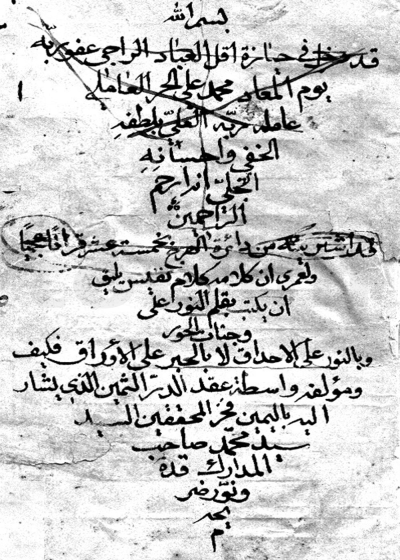 بسم الله
قد دخل في حيازة اقل العباد الراجي عفو ربه
يوم المعاد محمد علي الحر العاملي
عامله ربه العلي بلطفه
الخفي واحسانه
الجلي انه ارحم
الراحمين
قد اشتريته من بخمسة عشر قرانا عجميا
ولعمري ان كلامه كلام نفيس يليق
ان يكتب بقلم النور على
وجنات الحور
وبالنور على الاحداق لا بالحبر على الأوراق فكيف
ومؤلفه واسطة عقد الدر الثمين الذي يشار
اليه باليمين فخر المحققين السيد
سيد محمد صاحب
المدارك قده
ونور ضر
يحه
م